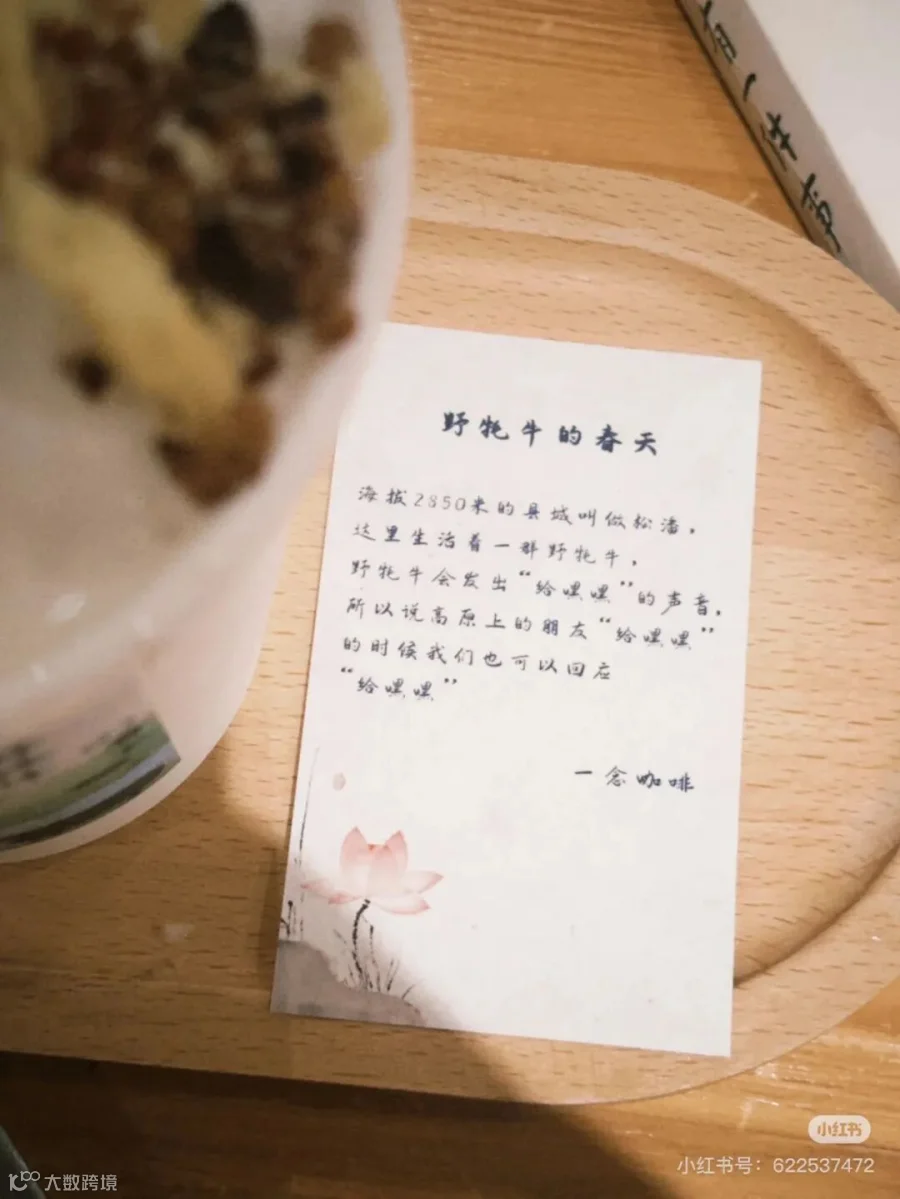 野牦牛的春天
海拔2850米的县城叫做松潘，
这里生活着一群野牦牛，
野牦牛会发出“给嘿嘿”的声音，
所以说高原上的朋友“给嘿嘿”
的时候我们也可以回应
“给嘿嘿”
一念咖啡
小红书
小红书号：622537472
大数跨境